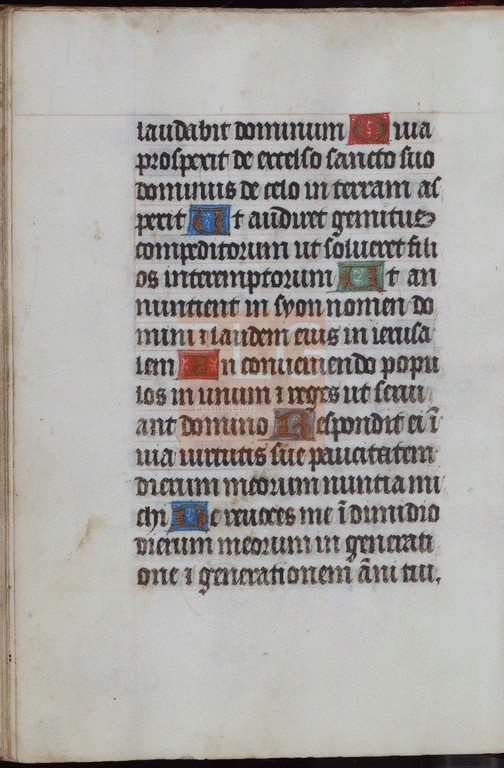 laudabit dominum Quia
prospexit de excelso sancto suo
dominus de celo in terram as
pexit Ut audiret gemitus
compeditorum ut solveret fili
os interemptorum Ut an
nuntient in syon nomen do
mini ⁊ laudem eius in ierusa
lem In conveniendo popu
los in unum ⁊ reges ut servi
ant domino Respondit ei ī
via virtutis sue paucitatem
dierum meorum nuntia mi
chi Ne revoces me ī dimidio
dierum meorum in generati
one ⁊ generationem āni tui.